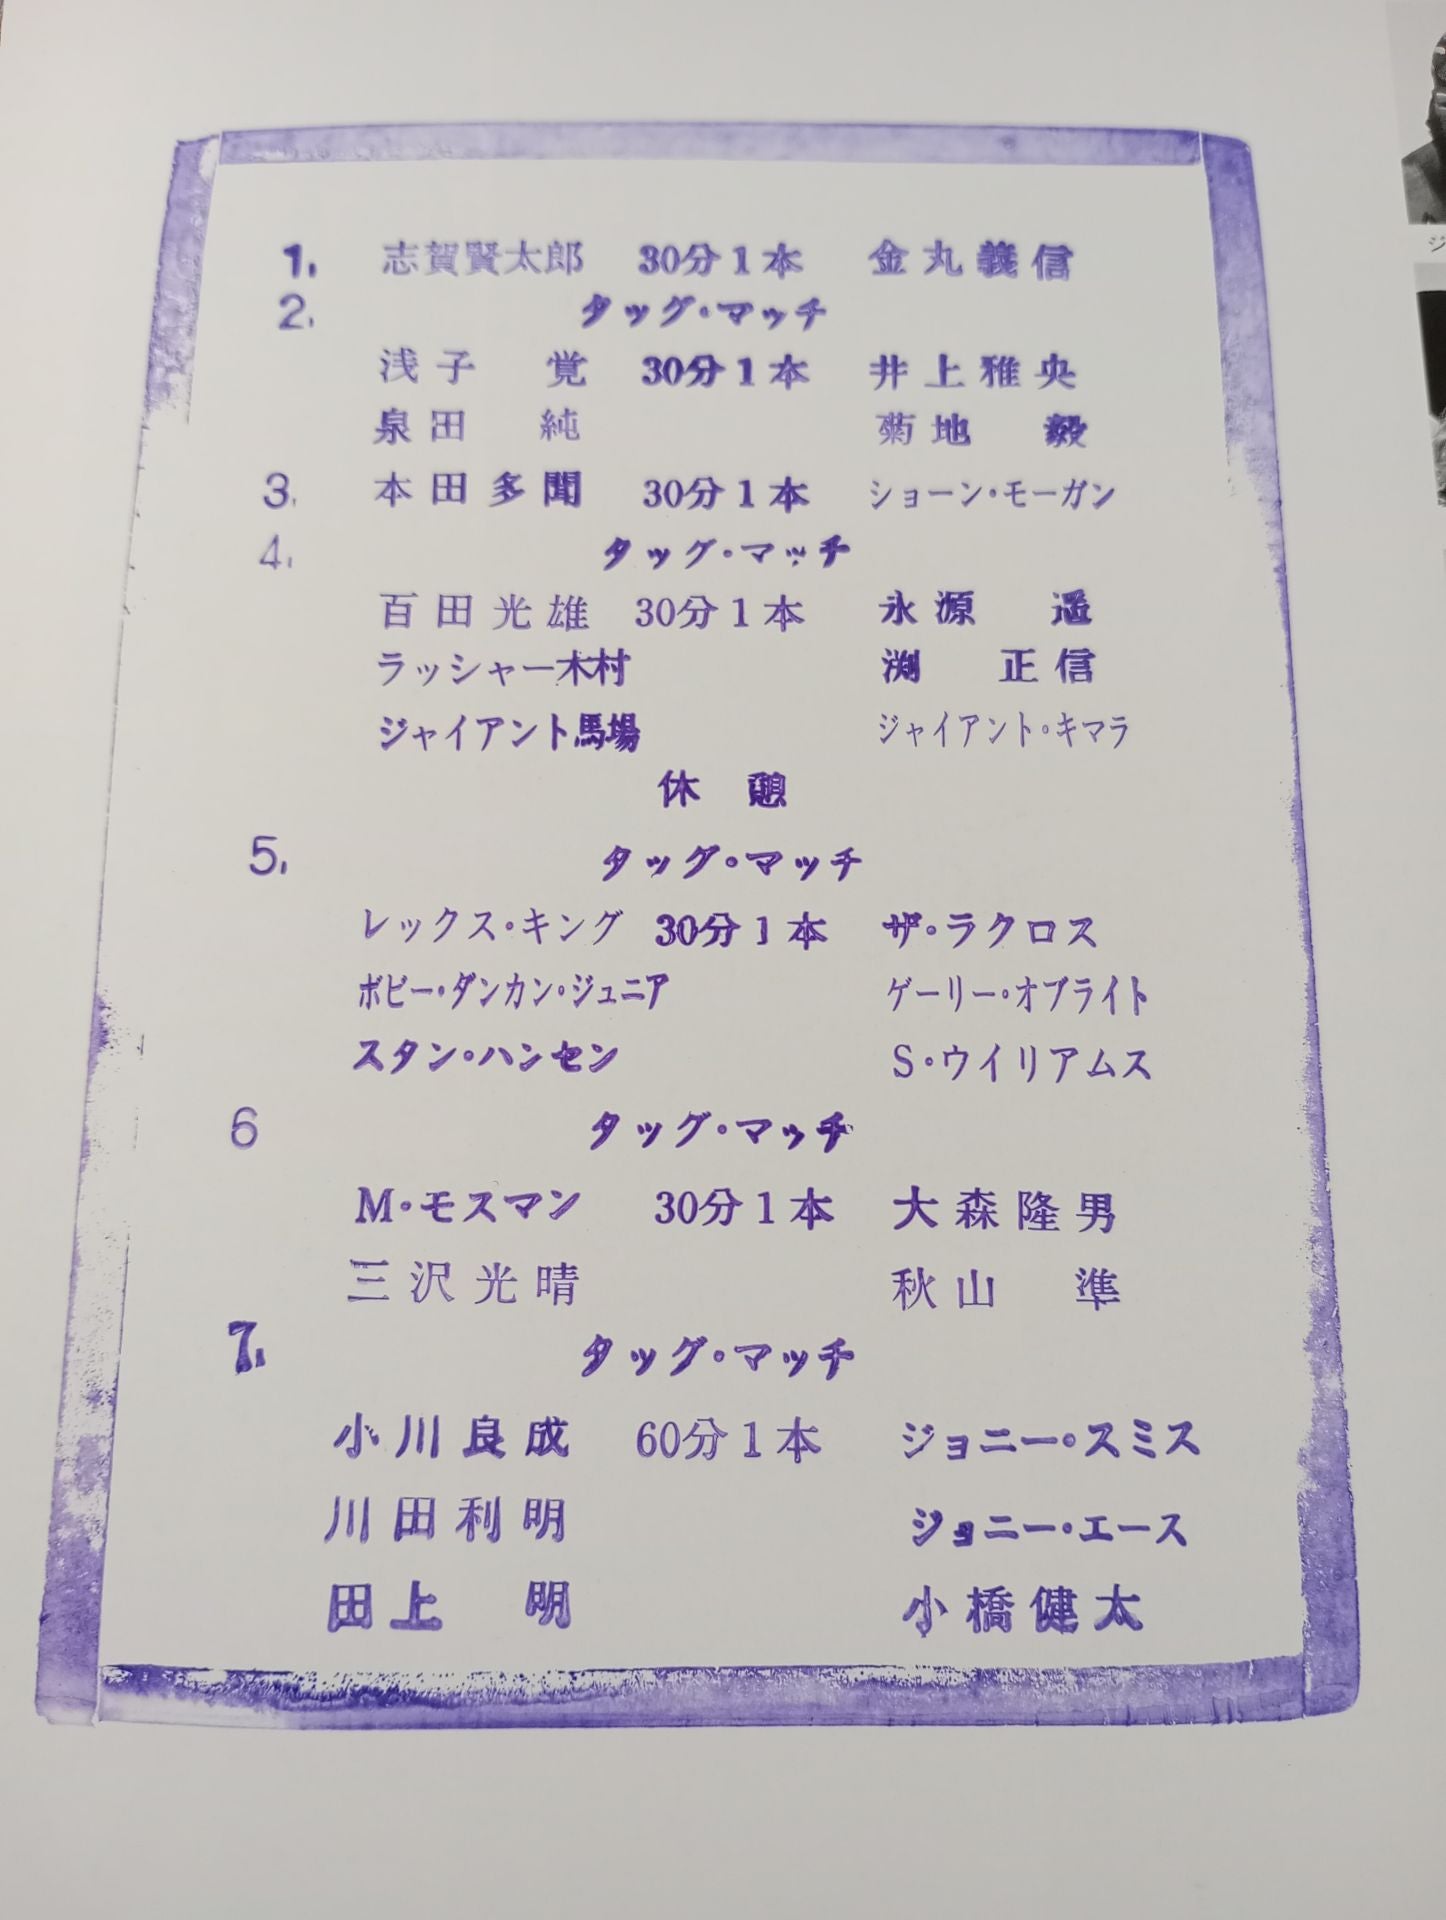 1. 志賀賢太郎 30分1本 金丸義信
2. タッグ・マッチ
浅子 覚 30分1本 井上雅央
泉田 純 菊地 毅
3. 本田多聞 30分1本 ショーン・モーガン
4. タッグ・マッチ
百田光雄 30分1本 永源 遥
ラッシャー木村 渕 正信
ジャイアント馬場 ジャイアント・キマラ
休憩
5. タッグ・マッチ
レックス・キング 30分1本 ザ・ラクロス
ボビー・ダンカン・ジュニア ゲーリー・オブライト
スタン・ハンセン S・ウイリアムス
6 タッグ・マッチ
M・モスマン 30分1本 大森隆男
三沢光晴 秋山 準
7. タッグ・マッチ
小川良成 60分1本 ジョニー・スミス
川田利明 ジョニー・エース
田上 明 小橋健太